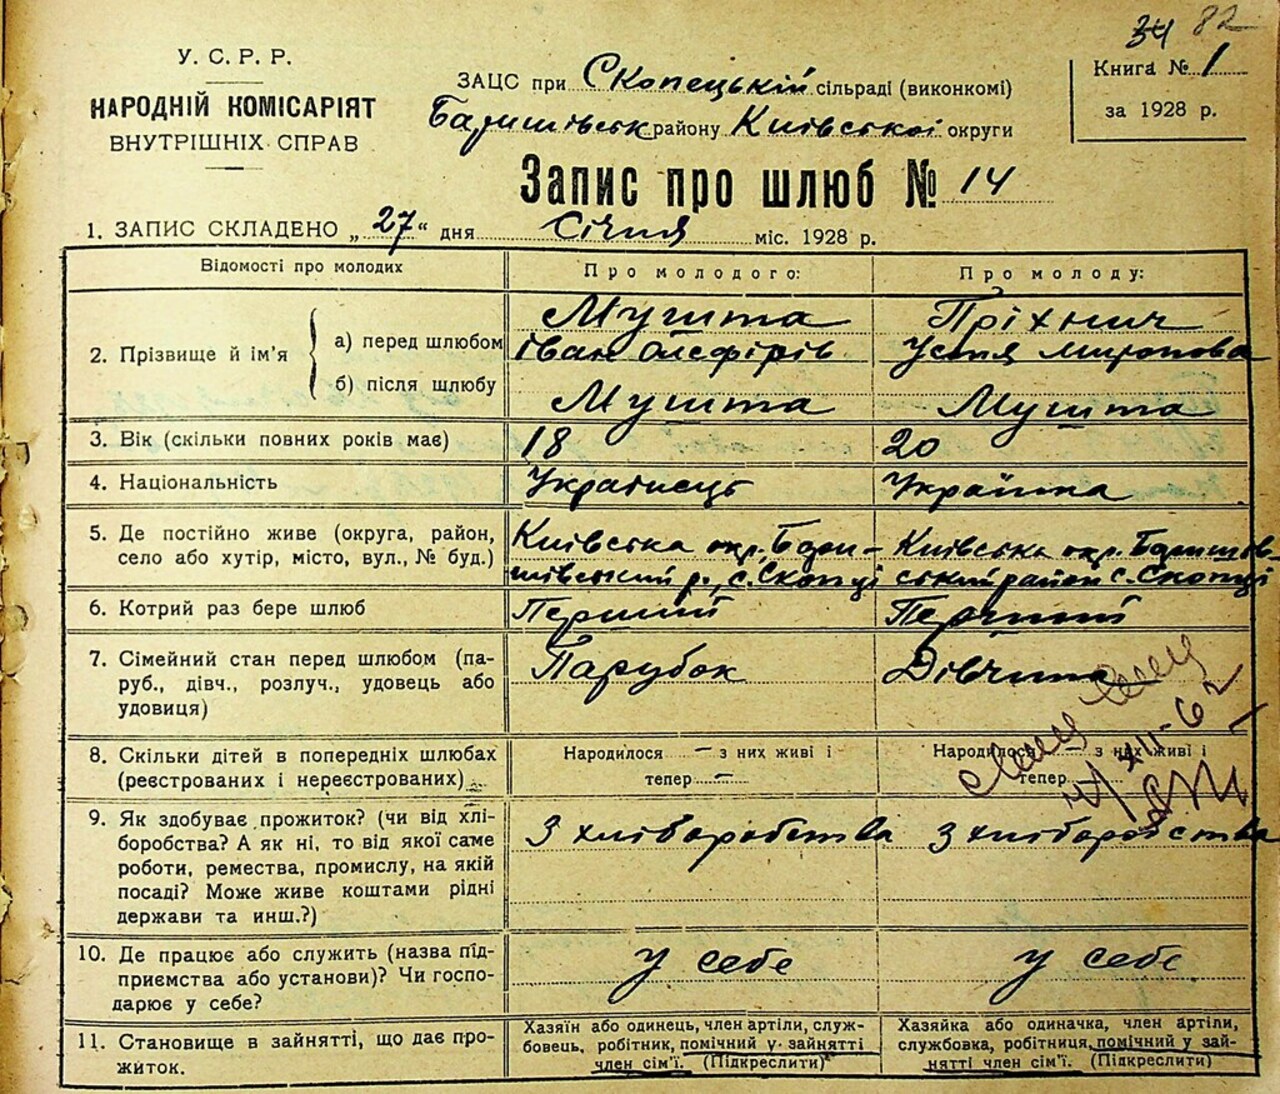 34 82
У. С. Р. Р.
НАРОДНІЙ КОМІСАРІЯТ
ВНУТРІШНІХ СПРАВ
ЗАЦС при Скопецькій сільраді (виконкомі)
Баришівськ району Київської округи
Книга № 1
за 1928 р.
Запис про шлюб № 14
1. ЗАПИС СКЛАДЕНО „27“ дня Січня міс. 1928 р.
Відомості про молодих
Про молодого:
Про молоду:
2. Прізвище й ім'я
а) перед шлюбом
б) після шлюбу
Мушта
Іван Олефірів
Мушта
Пріхнич
Устя Миронова
Мушта
3. Вік (скільки повних років має)
18
20
4. Національність
Українець
Українка
5. Де постійно живе (округа, район,
село або хутір, місто, вул., № буд.)
Київська окр. Бари-
шівський р., с. Скопці
Київська окр. Баришів-
ський район с. Скопці
6. Котрий раз бере шлюб
Перший
Перший
7. Сімейний стан перед шлюбом (па-
руб., дівч., розлуч., удовець або
удовиця)
Парубок
Дівчина
8. Скільки дітей в попередніх шлюбах
(реєстрованих і нереєстрованих)
Народилося — з них живі і
тепер —
Народилося — з них живі і
тепер
9. Як здобуває прожиток? (чи від хлі-
боробства? А як ні, то від якої саме
роботи, ремества, промислу, на якій
посаді? Може живе коштами рідні
держави та инш.?)
З хліборобства
З хліборобства
10. Де працює або служить (назва під-
приємства або установи)? Чи госпо-
дарює у себе?
у себе
у себе
11. Становище в зайнятті, що дає про-
житок.
Хазяїн або одинець, член артіли, служ-
бовець, робітник, помічний у зайнятті
член сім'ї. (Підкреслити)
Хазяйка або одиначка, член артіли,
службовка, робітниця, помічний у зай-
нятті член сім'ї. (Підкреслити)